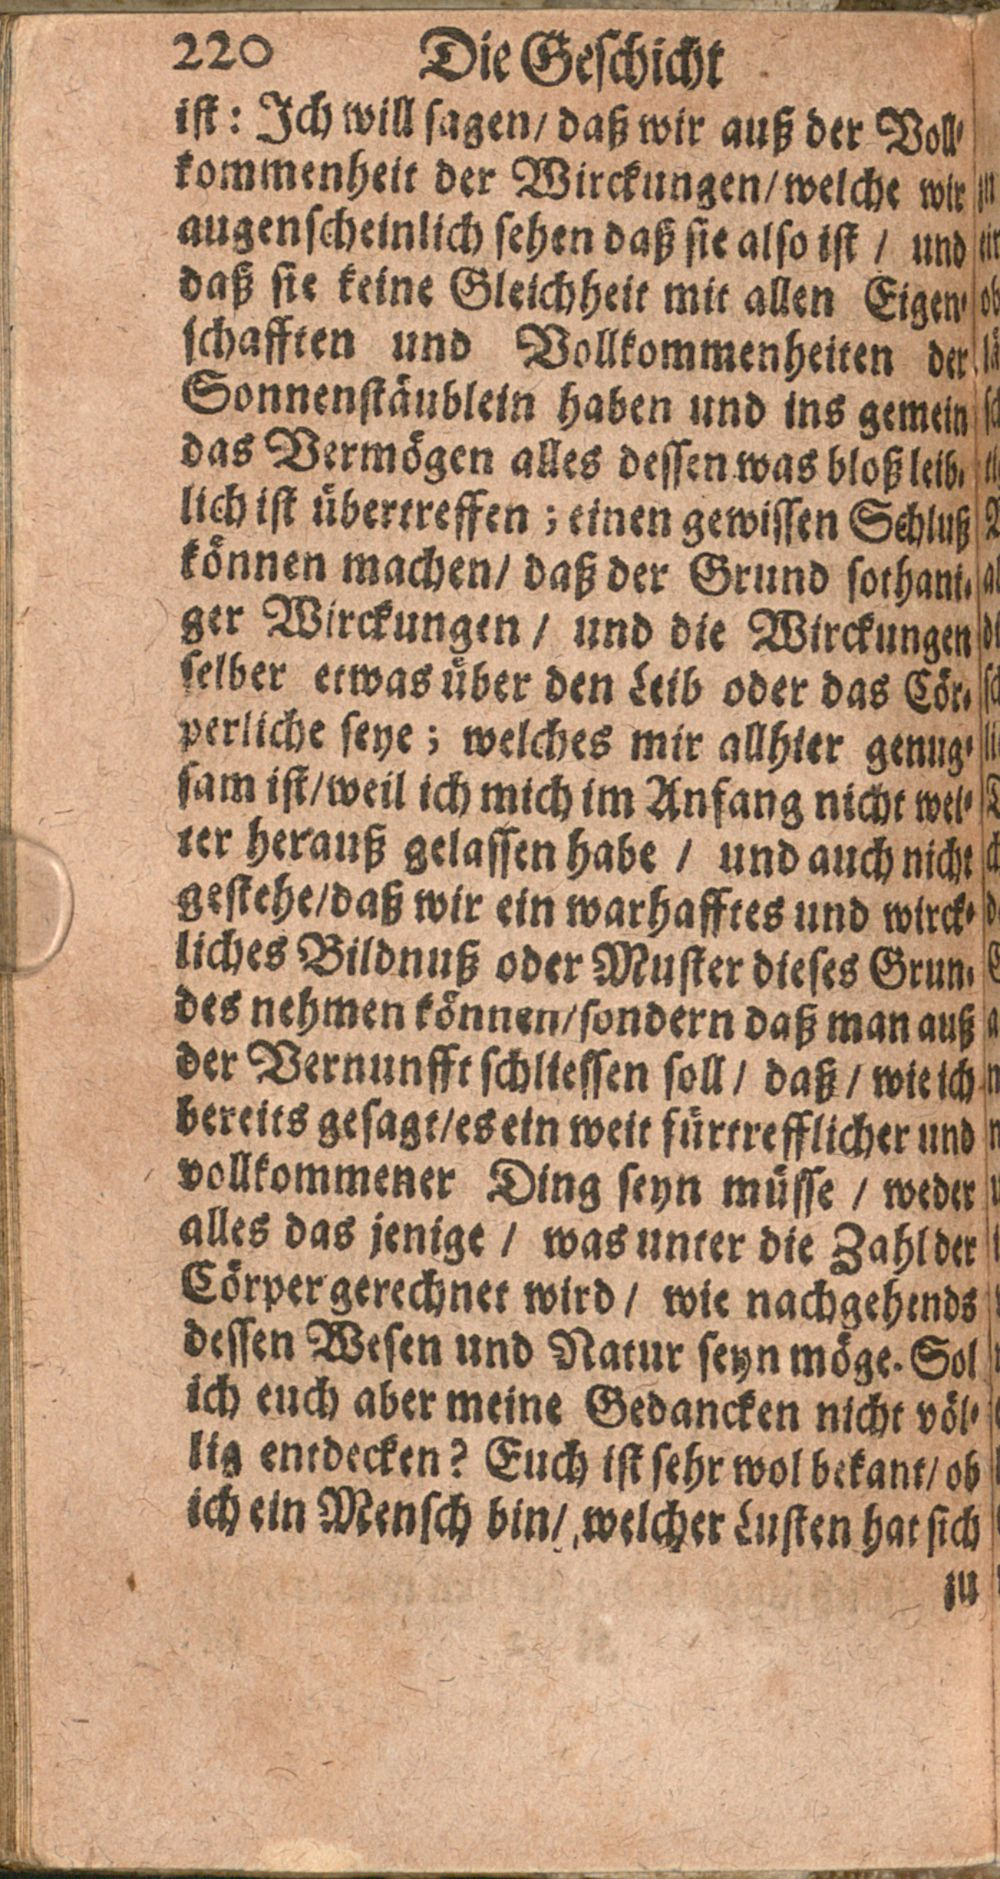 220 Die Geschicht
ist: Ich will sagen/ daß wir auß der Voll-
kommenheit der Wirckungen/welche wir
augenscheinlich sehen daß sie also ist / und
daß sie keine Gleichheit mit allen Eigen-
schafften und Vollkommenheiten der
Sonnenstäublein haben und ins gemein
das Vermögen alles dessen was bloß leib-
lich ist übertreffen ; einen gewissen Schluß
können machen/ daß der Grund sothani-
ger Wirckungen / und die Wirckungen
selber etwas über den Leib oder das Cör-
perliche seye ; welches mir allhier genug-
sam ist/weil ich mich im Anfang nicht wei-
ter herauß gelassen habe / und auch nicht
gestehe/daß wir ein warhafftes und wirck-
liches Bildnuß oder Muster dieses Grun-
des nehmen können/sondern daß man auß
der Vernunfft schliessen soll / daß / wie ich
bereits gesagt/es ein weit fürtrefflicher und
vollkommener Ding seyn müsse / weder
alles das jenige / was unter die Zahl der
Cörper gerechnet wird / wie nachgehends
dessen Wesen und Natur seyn möge. Sol
ich euch aber meine Gedancken nicht völ-
lig entdecken? Euch ist sehr wol bekant/ ob
ich ein Mensch bin/ welcher Lusten hat sich
zu